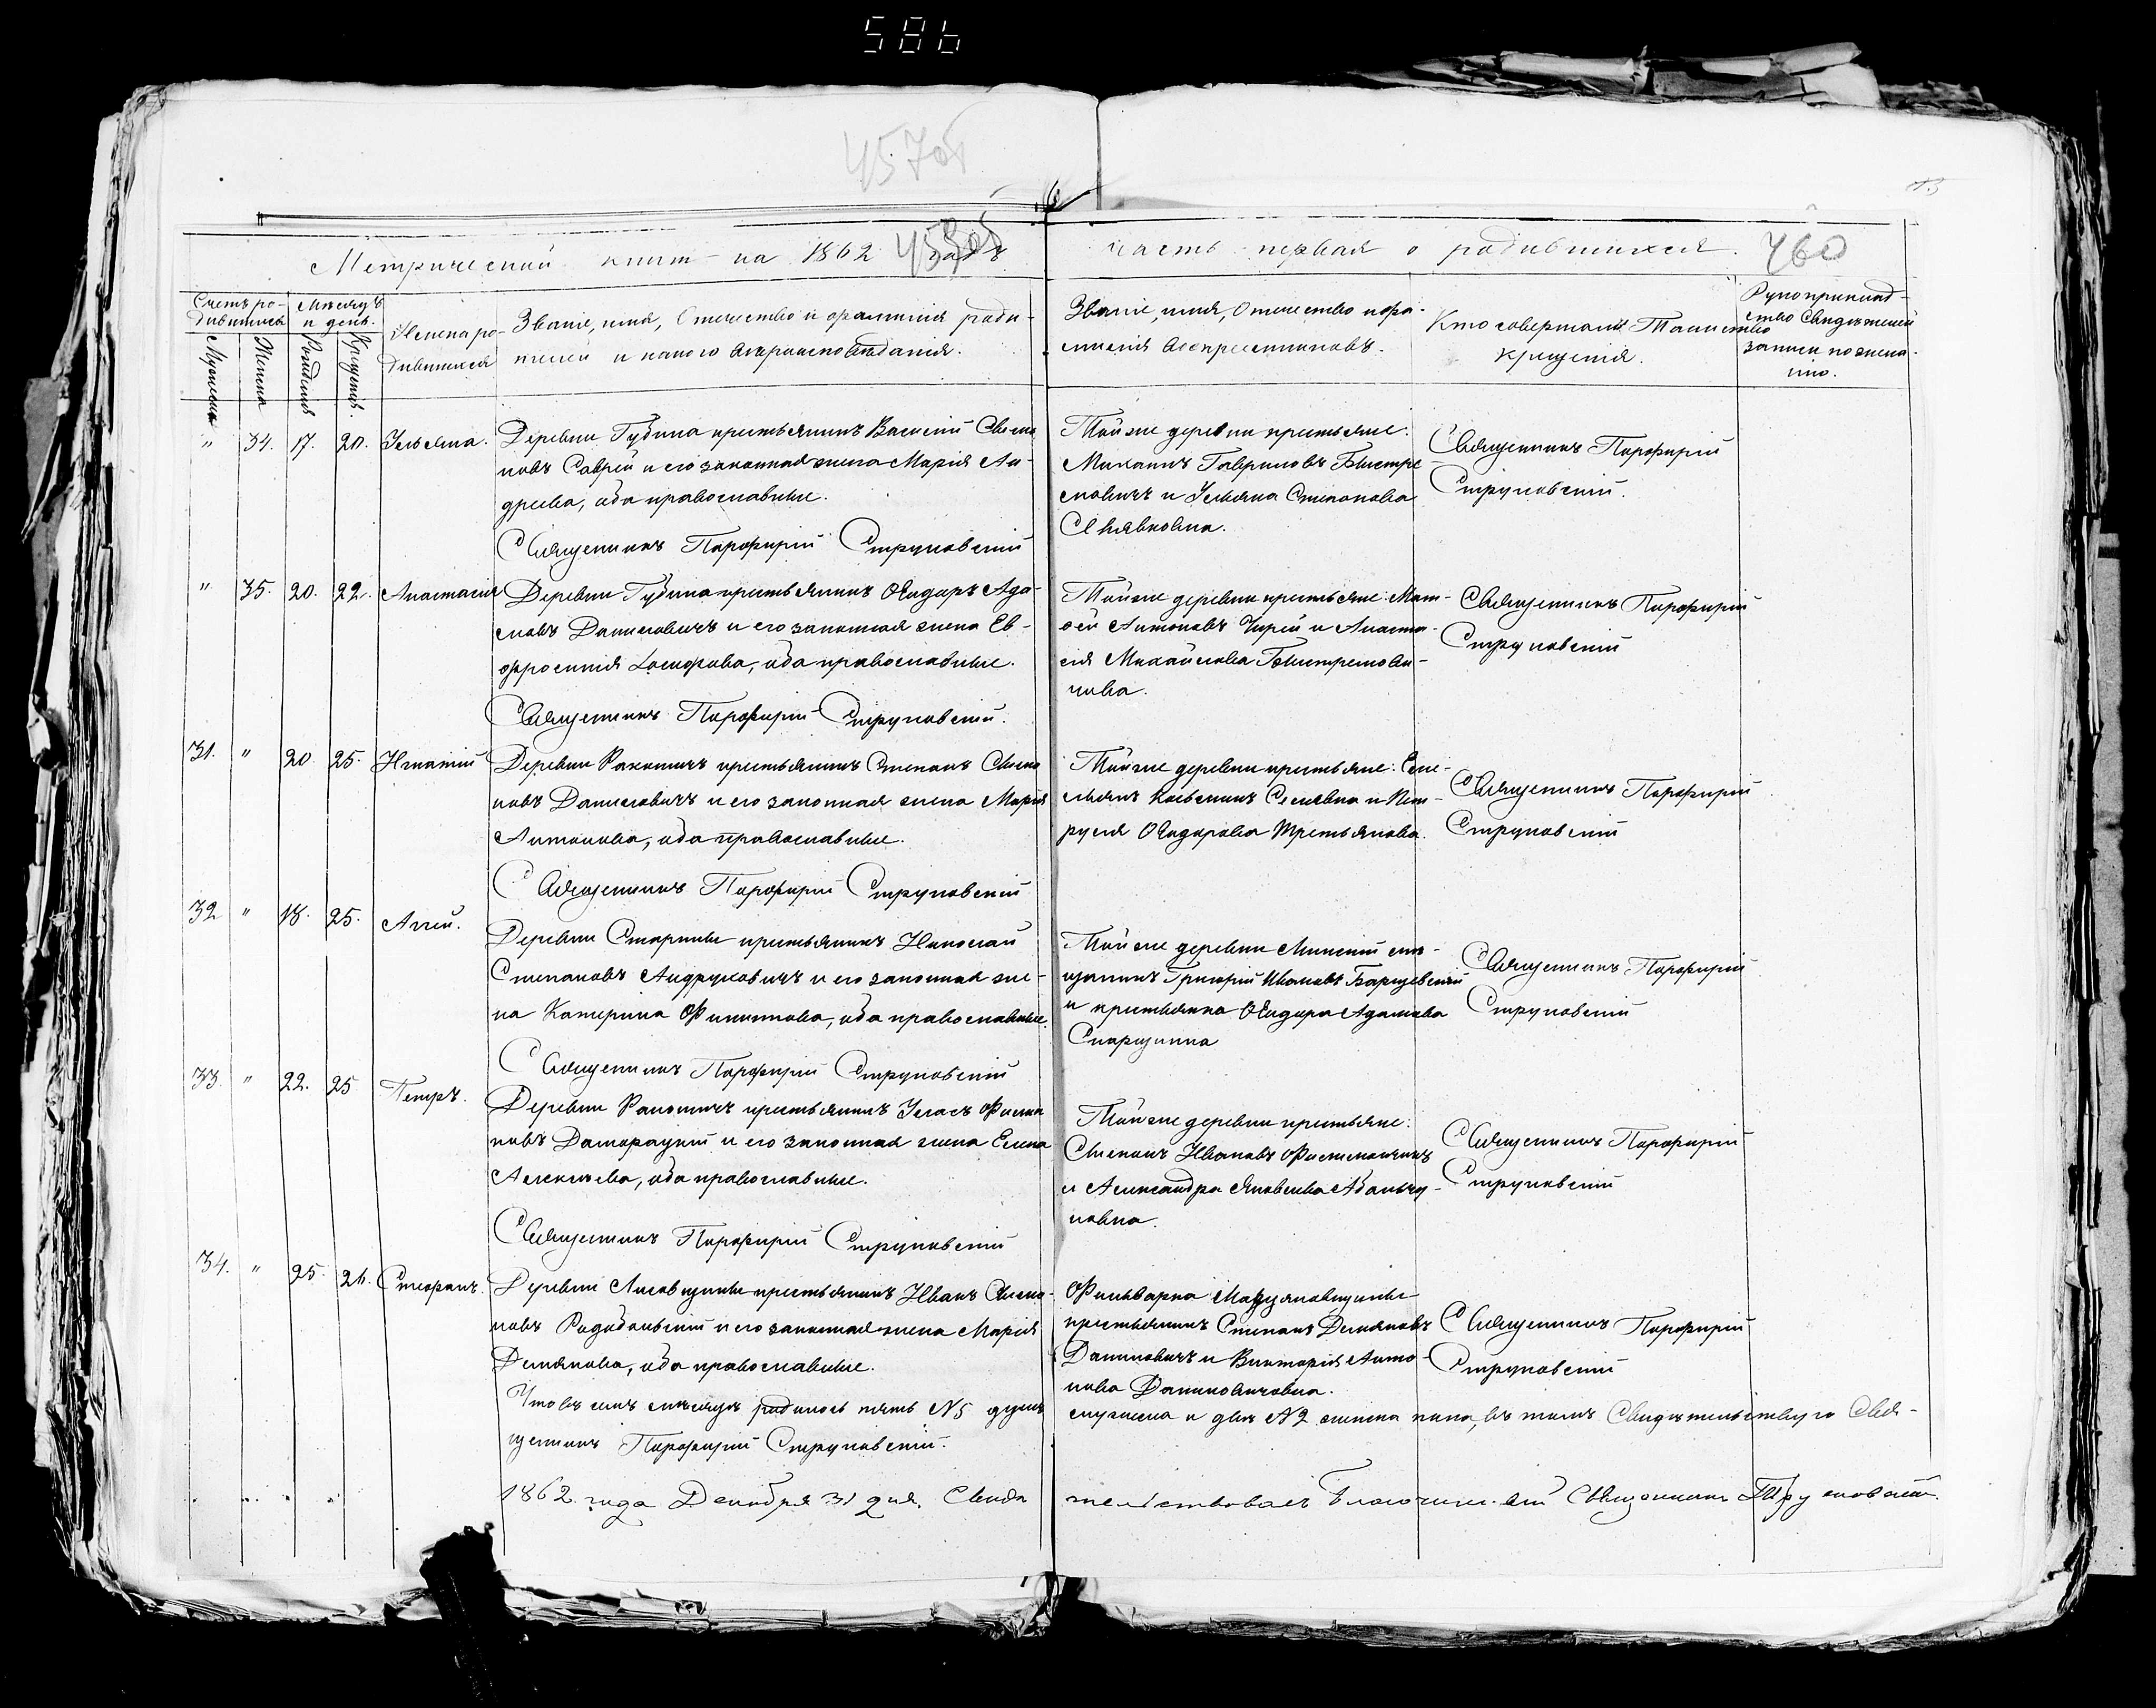 586
457об
Метрической книги на 1862 годъ
часть первая о родившихся.
460
Счетъ ро-
дившихся
Мѣсяцъ
и день.
Мужеска
Женска
Рожденія
Крещенія.
Имена ро-
дившихся
Званіе, имя, Отчество и фамилія роди-
телей и какого вѣроисповѣданія.
Званіе, имя, Отчество и фа-
милія воспріемниковъ.
Кто совершалъ Таинство
крещенія.
Рукоприклад-
ство Свидѣтелей
записи по жела-
нію.
" 34. 17. 20. Ульяна.
Деревни Губина крестьянинъ Василій Степа
новъ Саврей и его законная жена Марія Ан-
дреева, оба православные.
Священникъ Порфирій Струковскій
Той же деревни крестьяне:
Михаилъ Гавриловъ Быстре
мовичъ и Ульяна Степанова
Священникъ Порфирій
Струковскій.
" 35. 20. 22. Анастасія
Деревни Губина крестьянинъ Ѳеодоръ Ада-
мовъ Даниловичъ и его законная жена Ев-
фросинія Іосифова, оба православные.
Священникъ Порфирій Струковскій.
Той же деревни крестьяне: Мат-
ѳей Антоновъ Чирей и Анаста-
сія Михайлова Быстремови-
чова.
Священникъ Порфирій
Струковскій
31. " 20 25. Игнатій
Деревни Ракотичъ крестьянинъ Степанъ Степа
новъ Даниловичъ и его законная жена Марія
Антонова, оба православные.
Священникъ Порфирій Струковскій
Той же деревни крестьяне: Еме-
льянъ и Пет-
руся Ѳеодорова Третьякова.
Священникъ Порфирій
Струковскій
32 " 18. 25. Аггей.
Деревни Старины крестьянинъ Николай
Степановъ Андруковичъ и его законная же-
на Катерина Филиппова, оба православные.
Священникъ Порфирій Струковскій
Той же деревни Минскій мѣ-
щанинъ Григорій Ивановъ Барщевскій
и крестьянка Ѳеодора Адамова
Священникъ Порфирій
Струковскій
33. " 22. 25 Петръ.
Деревни Ракотичъ крестьянинъ Уласъ
новъ Даморацкій и его законная жена Елена
Алексѣева, оба православные.
Священникъ Порфирій Струковскій
Той же деревни крестьяне:
Степанъ Ивановъ
и Александра Яковлева
новна.
Священникъ Порфирій
Струковскій
34. " 25. 26. Стефанъ.
Деревни Лисовщины крестьянинъ Иванъ Степа-
новъ и его законная жена Марія
Демянова, оба православные.
Фольварка
крестьянинъ Степанъ Демяновъ
Даниловичъ и Викторія Анто-
нова Даниловичовна.
Священникъ Порфирій
Струковскій
Что въ семъ мѣсяцѣ родилось пять №5 душъ
мужеска и двѣ №2 женска пола, въ томъ Свидѣтельствую Свя-
щенникъ Порфирій Струковскій.
1862 года Декабря 31 дня. Свидѣ
тельствовалъ Благочинный Священникъ